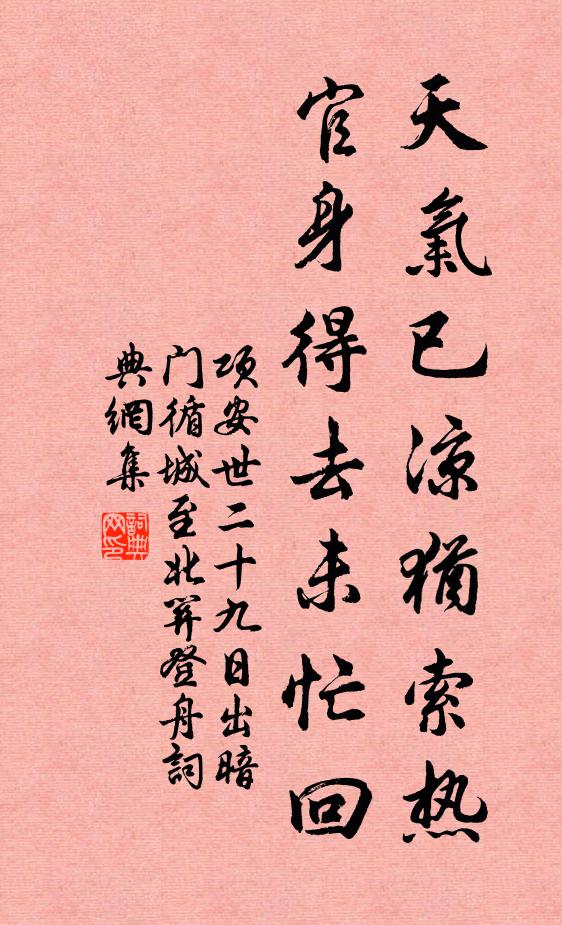 天氣已涼猶索热
官身得去未忙回
项安世二十九日出暗
门循城至北笄登舟詞
典網集
詞典网印